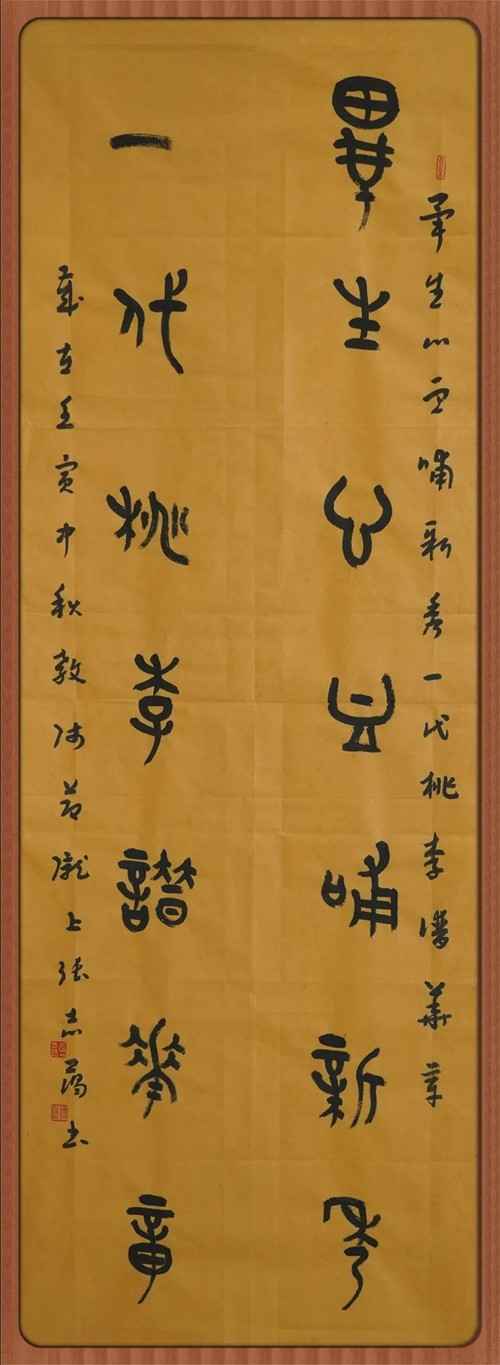 畢生心血哺新秀一代桃李譜華章
畢生心血哺新秀
一代桃李譜華章
歲在壬寅中秋教師節隴上張志書